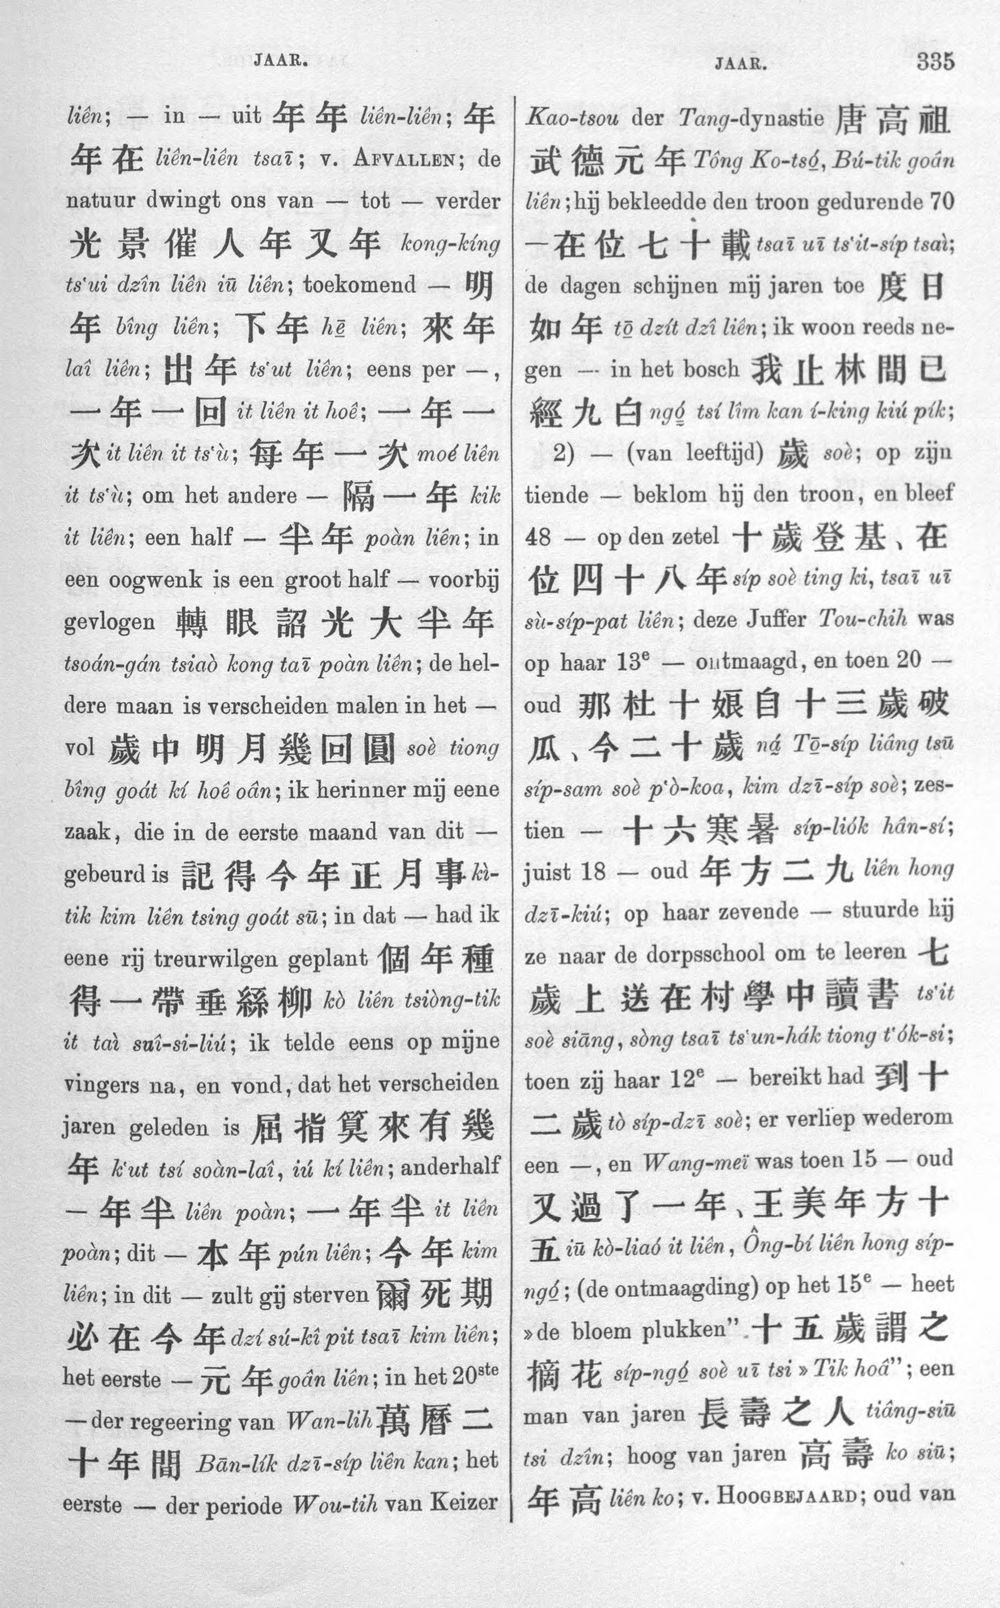 JAAR.
liên; — in — uit 年年 liên-liên; 年
年在 liên-liên tsaī; v. AFVALLEN; de
natuur dwingt ons van — tot — verder
光景催人年又年 kong-kíng
ts‘ui dzîn liên iū liên; toekomend — 明
年 bîng liên; 下年 hē liên; 來年
laî liên; 出年 ts‘ut liên; eens per —,
一年一回 it liên it hoê; 一年一
次 it liên it ts‘ù; 每年一次 moé liên
it ts‘ù; om het andere — 隔一年 kik
it liên; een half — 半年 poàn liên; in
een oogwenk is een groot half — voorbij
gevlogen 轉眼韶光大半年
tsoán-gán tsiaô kong taī poàn liên; de hel-
dere maan is verscheiden malen in het —
vol 歲中明月幾回圓 soè tiong
bîng goát kí hoê oân; ik herinner mij eene
zaak, die in de eerste maand van dit —
gebeurd is 記得今年正月事 kì-
tik kim liên tsing goát sū; in dat — had ik
eene rij treurwilgen geplant 個年種
得一帶垂絲柳 kò liên tsiòng-tik
it taì suî-si-liú; ik telde eens op mijne
vingers na, en vond, dat het verscheiden
jaren geleden is 屈指算來有幾
年 k‘ut tsí soàn-laî, iú kí liên; anderhalf
— 年半 liên poàn; 一年半 it liên
poàn; dit — 本年 pún liên; 今年 kim
liên; in dit — zult gij sterven 爾死期
必在今年 dzí sú-kî pit tsaī kim liên;
het eerste — 元年 goân liên; in het 20ste
— der regeering van Wan-lih 萬曆二
十年間 Bān-lík dzī-síp liên kan; het
eerste — der periode Wou-tih van Keizer
JAAR.
335
Kao-tsou der Tang-dynastie 唐高祖
武德元年 Tông Ko-tsó͘, Bú-tik goân
liên; hij bekleedde den troon gedurende 70
— 在位七十載 tsaī uī ts‘it-síp tsaì;
de dagen schijnen mij jaren toe 度日
如年 tō͘ dzít dzî liên; ik woon reeds ne-
gen — in het bosch 我止林間已
經九白 ngó͘ tsí lîm kan í-king kiú pík;
2) — (van leeftijd) 歲 soè; op zijn
tiende — beklom hij den troon, en bleef
48 — op den zetel 十歲登基、在
位四十八年 síp soè ting ki, tsaī uī
sù-síp-pat liên; deze Juffer Tou-chih was
op haar 13e — ontmaagd, en toen 20 —
oud 那杜十娘自十三歲破
瓜、今二十歲 ná Tō͘-síp liâng tsū
síp-sam soè p‘ò-koa, kim dzī-síp soè; zes-
tien — 十六寒暑 síp-liók hân-sí;
juist 18 — oud 年方二九 liên hong
dzī-kiú; op haar zevende — stuurde hij
ze naar de dorpsschool om te leeren 七
歲上送在村學中讀書 ts‘it
soè siāng, sòng tsaī ts‘un-hák tiong t‘ók-si;
toen zij haar 12e — bereikt had 到十
二歲 tò síp-dzī soè; er verliep wederom
een —, en Wang-meï was toen 15 — oud
又過了一年、王美年方十
五 iū kò-liaó it liên, Ông-bí liên hong síp-
ngó͘; (de ontmaagding) op het 15e — heet
»de bloem plukken” 十五歲謂之
摘花 síp-ngó͘ soè uī tsi »Tik hoâ”; een
man van jaren 長壽之人 tiâng-siū
tsi dzîn; hoog van jaren 高壽 ko siū;
年高 liên ko; v. HOOGBEJAARD; oud van